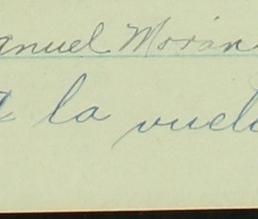 anuel Morán
a la vuelt